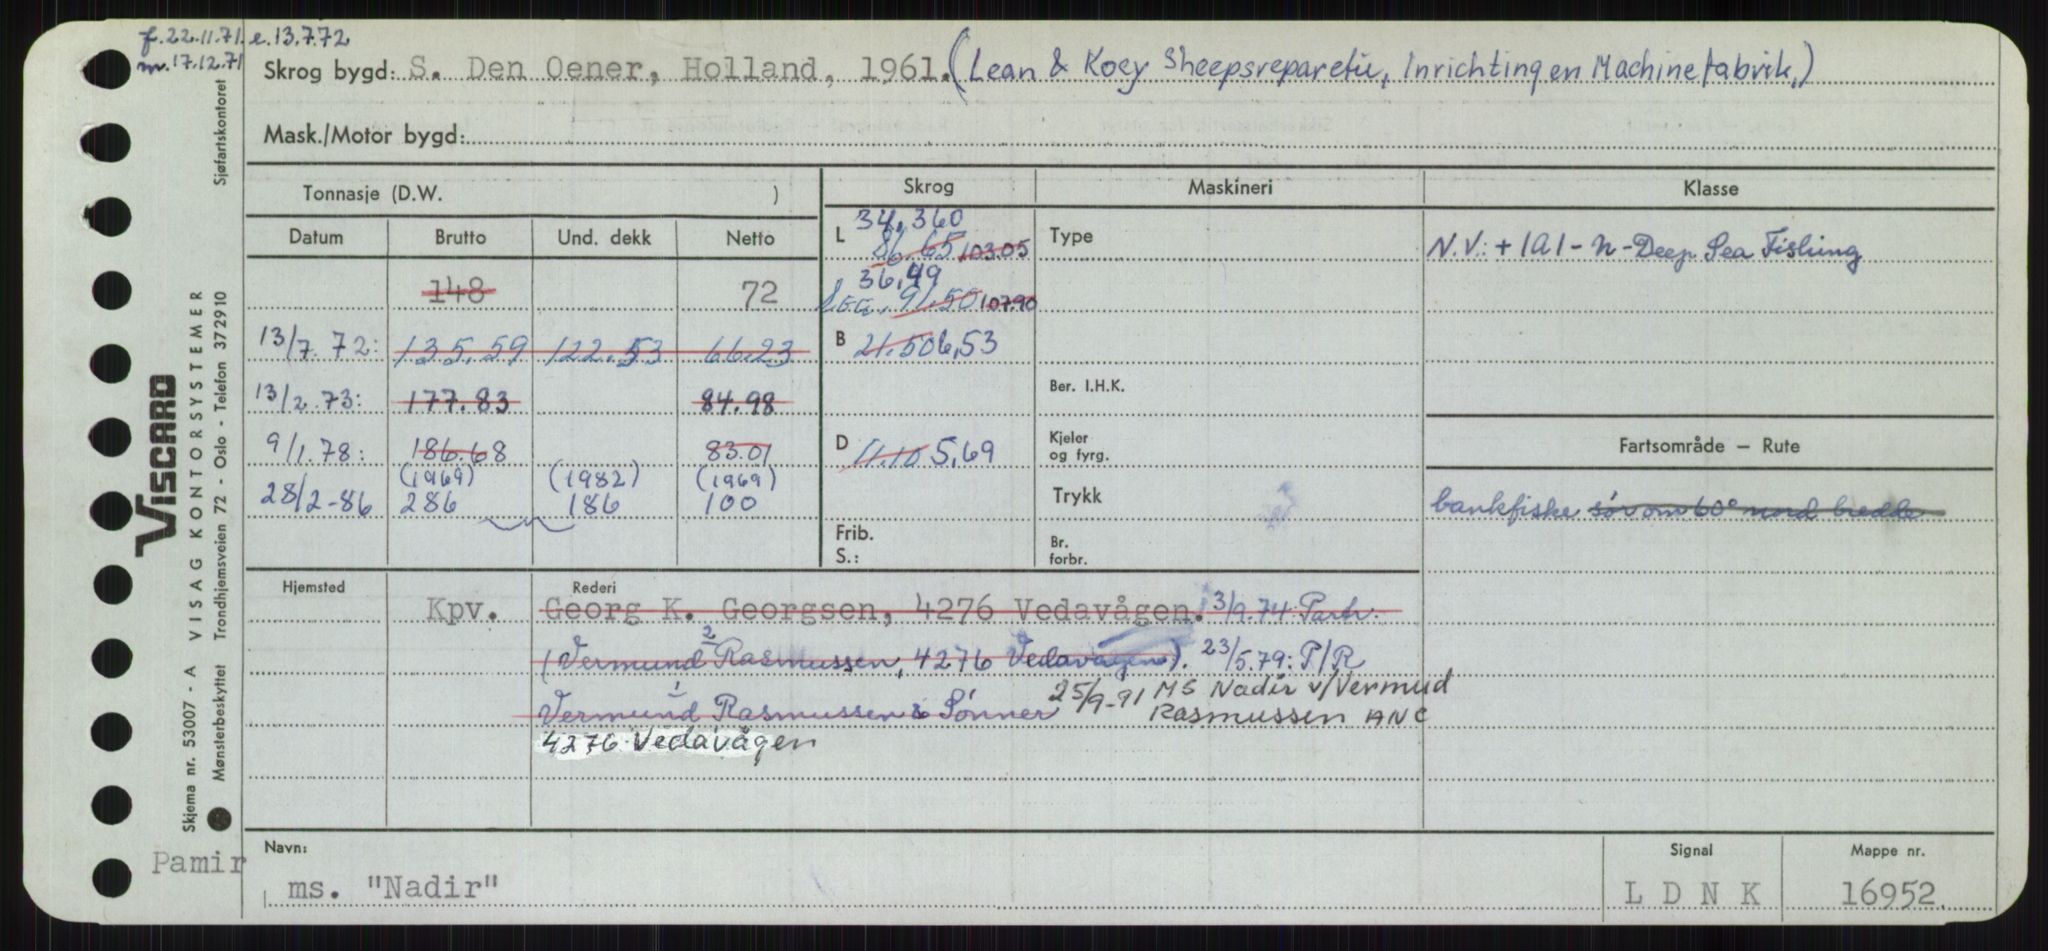 f. 22.11.71. e. 13.7.72
m. 17.12.71
Skrog bygd: S. Den Oener, Holland, 1961. (Lean & Koey Sheepsreparetie, Inrichting en Machinefabrik.)
Mask./Motor bygd:
Tonnasje (D.W. )
Skrog Maskineri Klasse
Datum Brutto Und. dekk Netto
L 34,360
86.65 103.05
Type
N.V.: + 1A1 - N - Deep Sea Fishing
148 72
36,49
Loa. 91.50 107.90
13/7. 72: 135.59 122.53 66.23
B 21.50 6,53
13/2. 73: 177.83 84.98
Ber. I.H.K.
9/1. 78: 186.68 83.01
D 11.10 5,69
Kjeler
og fyrg.
Fartsområde — Rute
(1969) (1982) (1969)
28/2-86 286 186 100
Trykk
bankfiske sør om 60° nord bredde
Frib.
S.:
Br.
forbr.
Hjemsted Rederi
Kpv. Georg K. Georgsen, 4276 Vedavågen. 3/9.74 Partr.
2
(Vermund Rasmussen, 4276 Vedavågen). 23/5.79: P/R
1
Vermund Rasmussen & Sønner 25/9-91 MS Nadir v/Vermud
Rasmussen ANC
4276 Vedavågen
Navn: Signal Mappe nr.
Pamir
ms. "Nadir" L D N K 16952.
Skjema nr. 53007 - A VISAG KONTORSYSTEMER
VISCARD
Mønsterbeskyttet Trondhjemsveien 72 - Oslo - Telefon 372910 Sjøfartskontoret